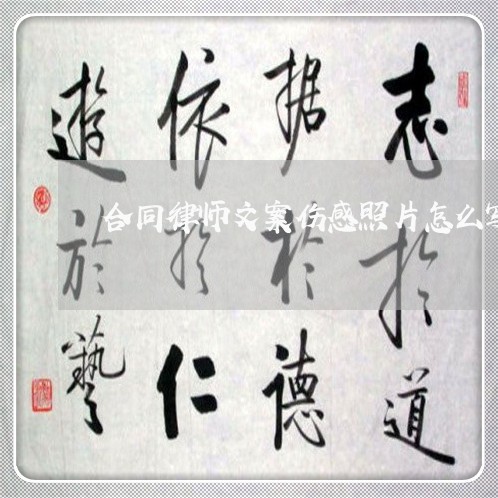 志於道
据於德
依於仁
遊於藝
合同律师文案伤感照片怎么